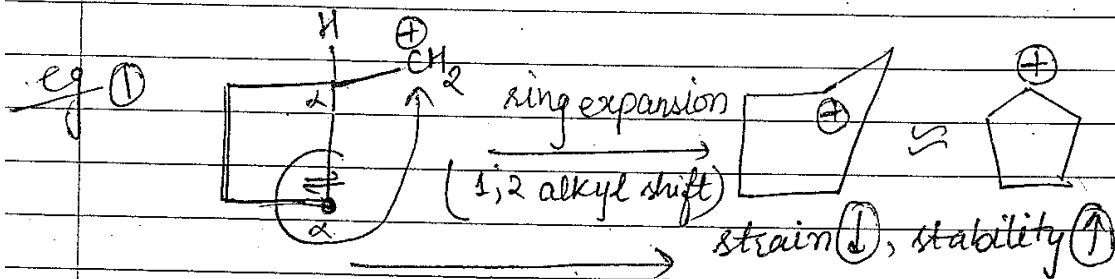 eg ① H ⊕ CH2
α
ring expansion ⊕ ≈ ⊕
(1,2 alkyl shift)
α
strain ↓, stability ↑